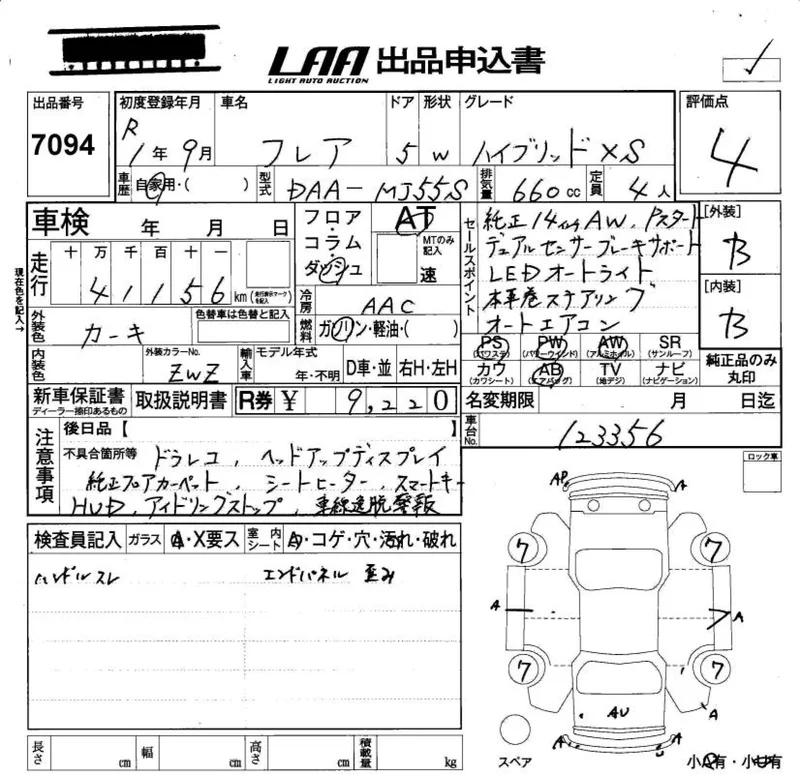 LAA 出品申込書
LIGHT AUTO AUCTION
出品番号
7094
初度登録年月
R
1年 9月
車名
フレア
ドア
5
形状
W
グレード
ハイブリッド XS
評価点
4
車歴
自家用・( )
型式
DAA-MJ55S
排気量
660cc
定員
4人
車検 年 月 日
フロア・コラム・ダッシュ
AT
MTのみ記入
速
セールスポイント
純正14インチAW、Pスタート
デュアルセンサーブレーキサポート
LEDオートライト
本革巻ステアリング
オートエアコン
[外装]
B
[内装]
B
走行
十 万 千 百 十 一
4 1 1 5 6 km
(走行表示マークを記入)
現在色を記入→
冷房
AAC
燃料
ガソリン・軽油・( )
外装色
カーキ
色替車は色替と記入
内装色
外装カラーNo.
ZWZ
輸入車
モデル年式
年・不明
D車・並
右H・左H
PS (パワステ)
PW (パワーウインド)
AW (アルミホイル)
SR (サンルーフ)
カワ (カワシート)
AB (エアバッグ)
TV (地デジ)
ナビ (ナビゲーション)
純正品のみ丸印
新車保証書
ディーラー捺印あるもの
取扱説明書
R券 ¥ 9,220
名変期限 月 日迄
車台No.
123356
注意事項
後日品【 】
不具合箇所等
ドラレコ、ヘッドアップディスプレイ
純正フロアカーペット、シートヒーター、スマートキー
HUD、アイドリングストップ、車線逸脱警報
ロック車
検査員記入
ガラス
A・X要ス
室内シート
A・コゲ・穴・汚れ・破れ
ハンドルスレ
エンドパネル 歪み
AP
A
7
7
A
A
7
7
A
AU
A
A
スペア
小A有・小U有
長さ cm
幅 cm
高さ cm
積載量 kg